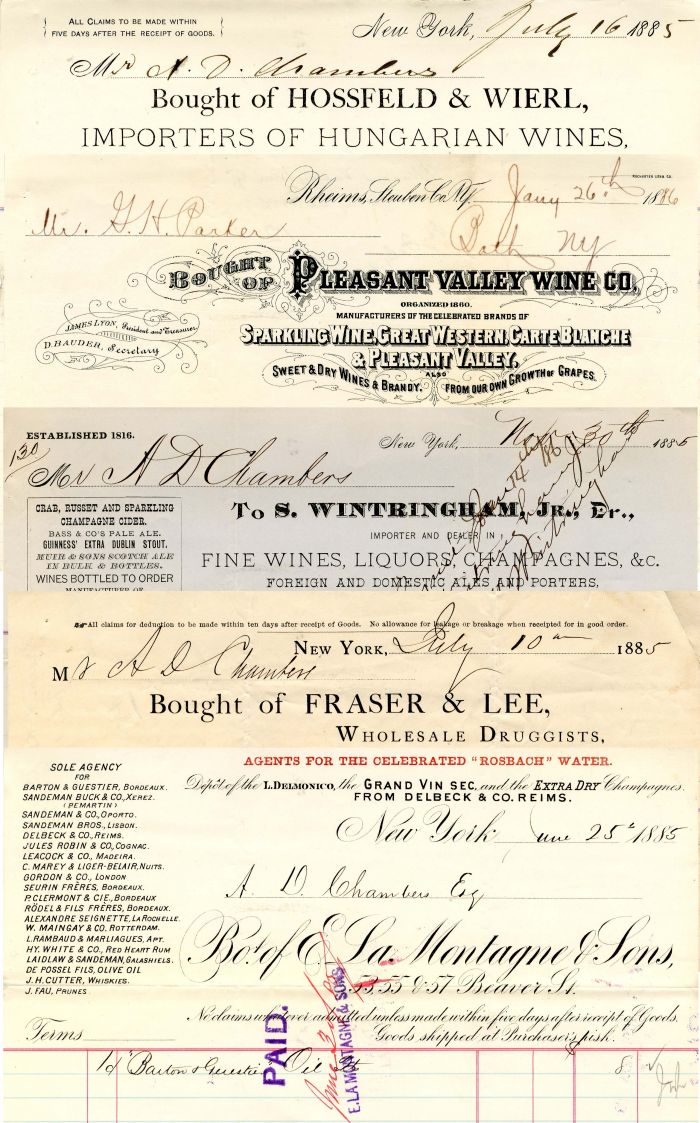 ALL CLAIMS TO BE MADE WITHIN
FIVE DAYS AFTER THE RECEIPT OF GOODS.
New York, July 16 1885
Mr A. D. Chambers
Bought of HOSSFELD & WIERL,
IMPORTERS OF HUNGARIAN WINES,
Rheims, Steuben Co. N.Y. Jany 26th 1886
Mr. G. H. Parker
Bath NY
BOUGHT OF PLEASANT VALLEY WINE CO.
ORGANIZED 1860.
MANUFACTURERS OF THE CELEBRATED BRANDS OF
SPARKLING WINE, GREAT WESTERN, CARTE BLANCHE
& PLEASANT VALLEY,
ALSO
SWEET & DRY WINES & BRANDY, FROM OUR OWN GROWTH OF GRAPES.
JAMES LYON, President and Treasurer.
D. BAUDER, Secretary
ESTABLISHED 1816.
130
New York, 30th 1885
Mr A D Chambers
CRAB, RUSSET AND SPARKLING
CHAMPAGNE CIDER.
BASS & CO'S PALE ALE.
GUINNESS' EXTRA DUBLIN STOUT.
MUIR & SONS SCOTCH ALE
IN BULK & BOTTLES.
WINES BOTTLED TO ORDER
MANUFACTURER OF
To S. WINTRINGHAM, JR., Dr.,
IMPORTER AND DEALER IN
FINE WINES, LIQUORS, CHAMPAGNES, &C.
FOREIGN AND DOMESTIC ALES AND PORTERS,
All claims for deduction to be made within ten days after receipt of Goods. No allowance for leakage or breakage when receipted for in good order.
NEW YORK, July 10 1885
Mr A D Chambers
Bought of FRASER & LEE,
WHOLESALE DRUGGISTS,
AGENTS FOR THE CELEBRATED "ROSBACH" WATER.
Depôt of the L. DELMONICO, the GRAND VIN SEC, and the EXTRA DRY Champagnes.
FROM DELBECK & CO. REIMS.
SOLE AGENCY
FOR
BARTON & GUESTIER, BORDEAUX.
SANDEMAN BUCK & CO., XEREZ.
(PEMARTIN)
SANDEMAN & CO., OPORTO.
SANDEMAN BROS., LISBON.
DELBECK & CO., REIMS.
JULES ROBIN & CO., COGNAC.
LEACOCK & CO., MADEIRA.
C. MAREY & LIGER-BELAIR, NUITS.
GORDON & CO., LONDON
SEURIN FRÈRES, BORDEAUX.
P. CLERMONT & CIE., BORDEAUX
RÖDEL & FILS FRÈRES, BORDEAUX.
ALEXANDRE SEIGNETTE, LA ROCHELLE.
W. MAINGAY & CO. ROTTERDAM.
L. RAMBAUD & MARLIAGUES, APT.
HY. WHITE & CO., RED HEART RUM
LAIDLAW & SANDEMAN, GALASHIELS.
DE POSSEL FILS, OLIVE OIL
J. H. CUTTER, WHISKIES.
J. FAU, PRUNES
New York June 25 1885
A. D. Chambers Esq
Bot. of E. La Montagne & Sons,
53, 55 & 57 Beaver St.
No claims whatever admitted unless made within five days after receipt of Goods.
Goods shipped at Purchaser's risk.
Terms
PAID.
E. LA MONTAGNE & SONS
Barton & Guestier Oil 8